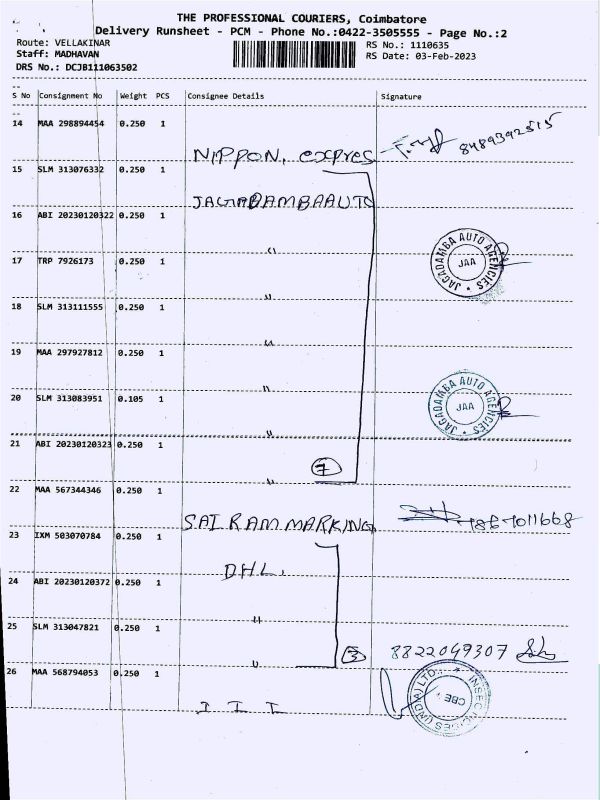 THE PROFESSIONAL COURIERS, Coimbatore
Delivery Runsheet - PCM - Phone No.:0422-3505555 - Page No.:2
Route: VELLAKINAR
RS No.: 1110635
Staff: MADHAVAN
RS Date: 03-Feb-2023
DRS No.: DCJB111063502
S No Consignment No Weight PCS Consignee Details Signature
14 MAA 298894454 0.250 1
NIPPON. expres 8489392515
15 SLM 313076332 0.250 1
JAGADAMBAAUTO
16 ABI 20230120322 0.250 1
"
17 TRP 7926173 0.250 1
JAGADAMBA AUTO AGENCIES * JAA
"
18 SLM 313111555 0.250 1
"
19 MAA 297927812 0.250 1
"
20 SLM 313083951 0.105 1
JAGADAMBA AUTO AGENCIES * JAA
"
21 ABI 20230120323 0.250 1
7
"
22 MAA 567344346 0.250 1
SAI RAM MARKING
23 IXM 503070784 0.250 1
DHL.
24 ABI 20230120372 0.250 1
"
25 SLM 313047821 0.250 1
" 3 8822049307
26 MAA 568794053 0.250 1
I I I
(INDIA) LTD. * CBE